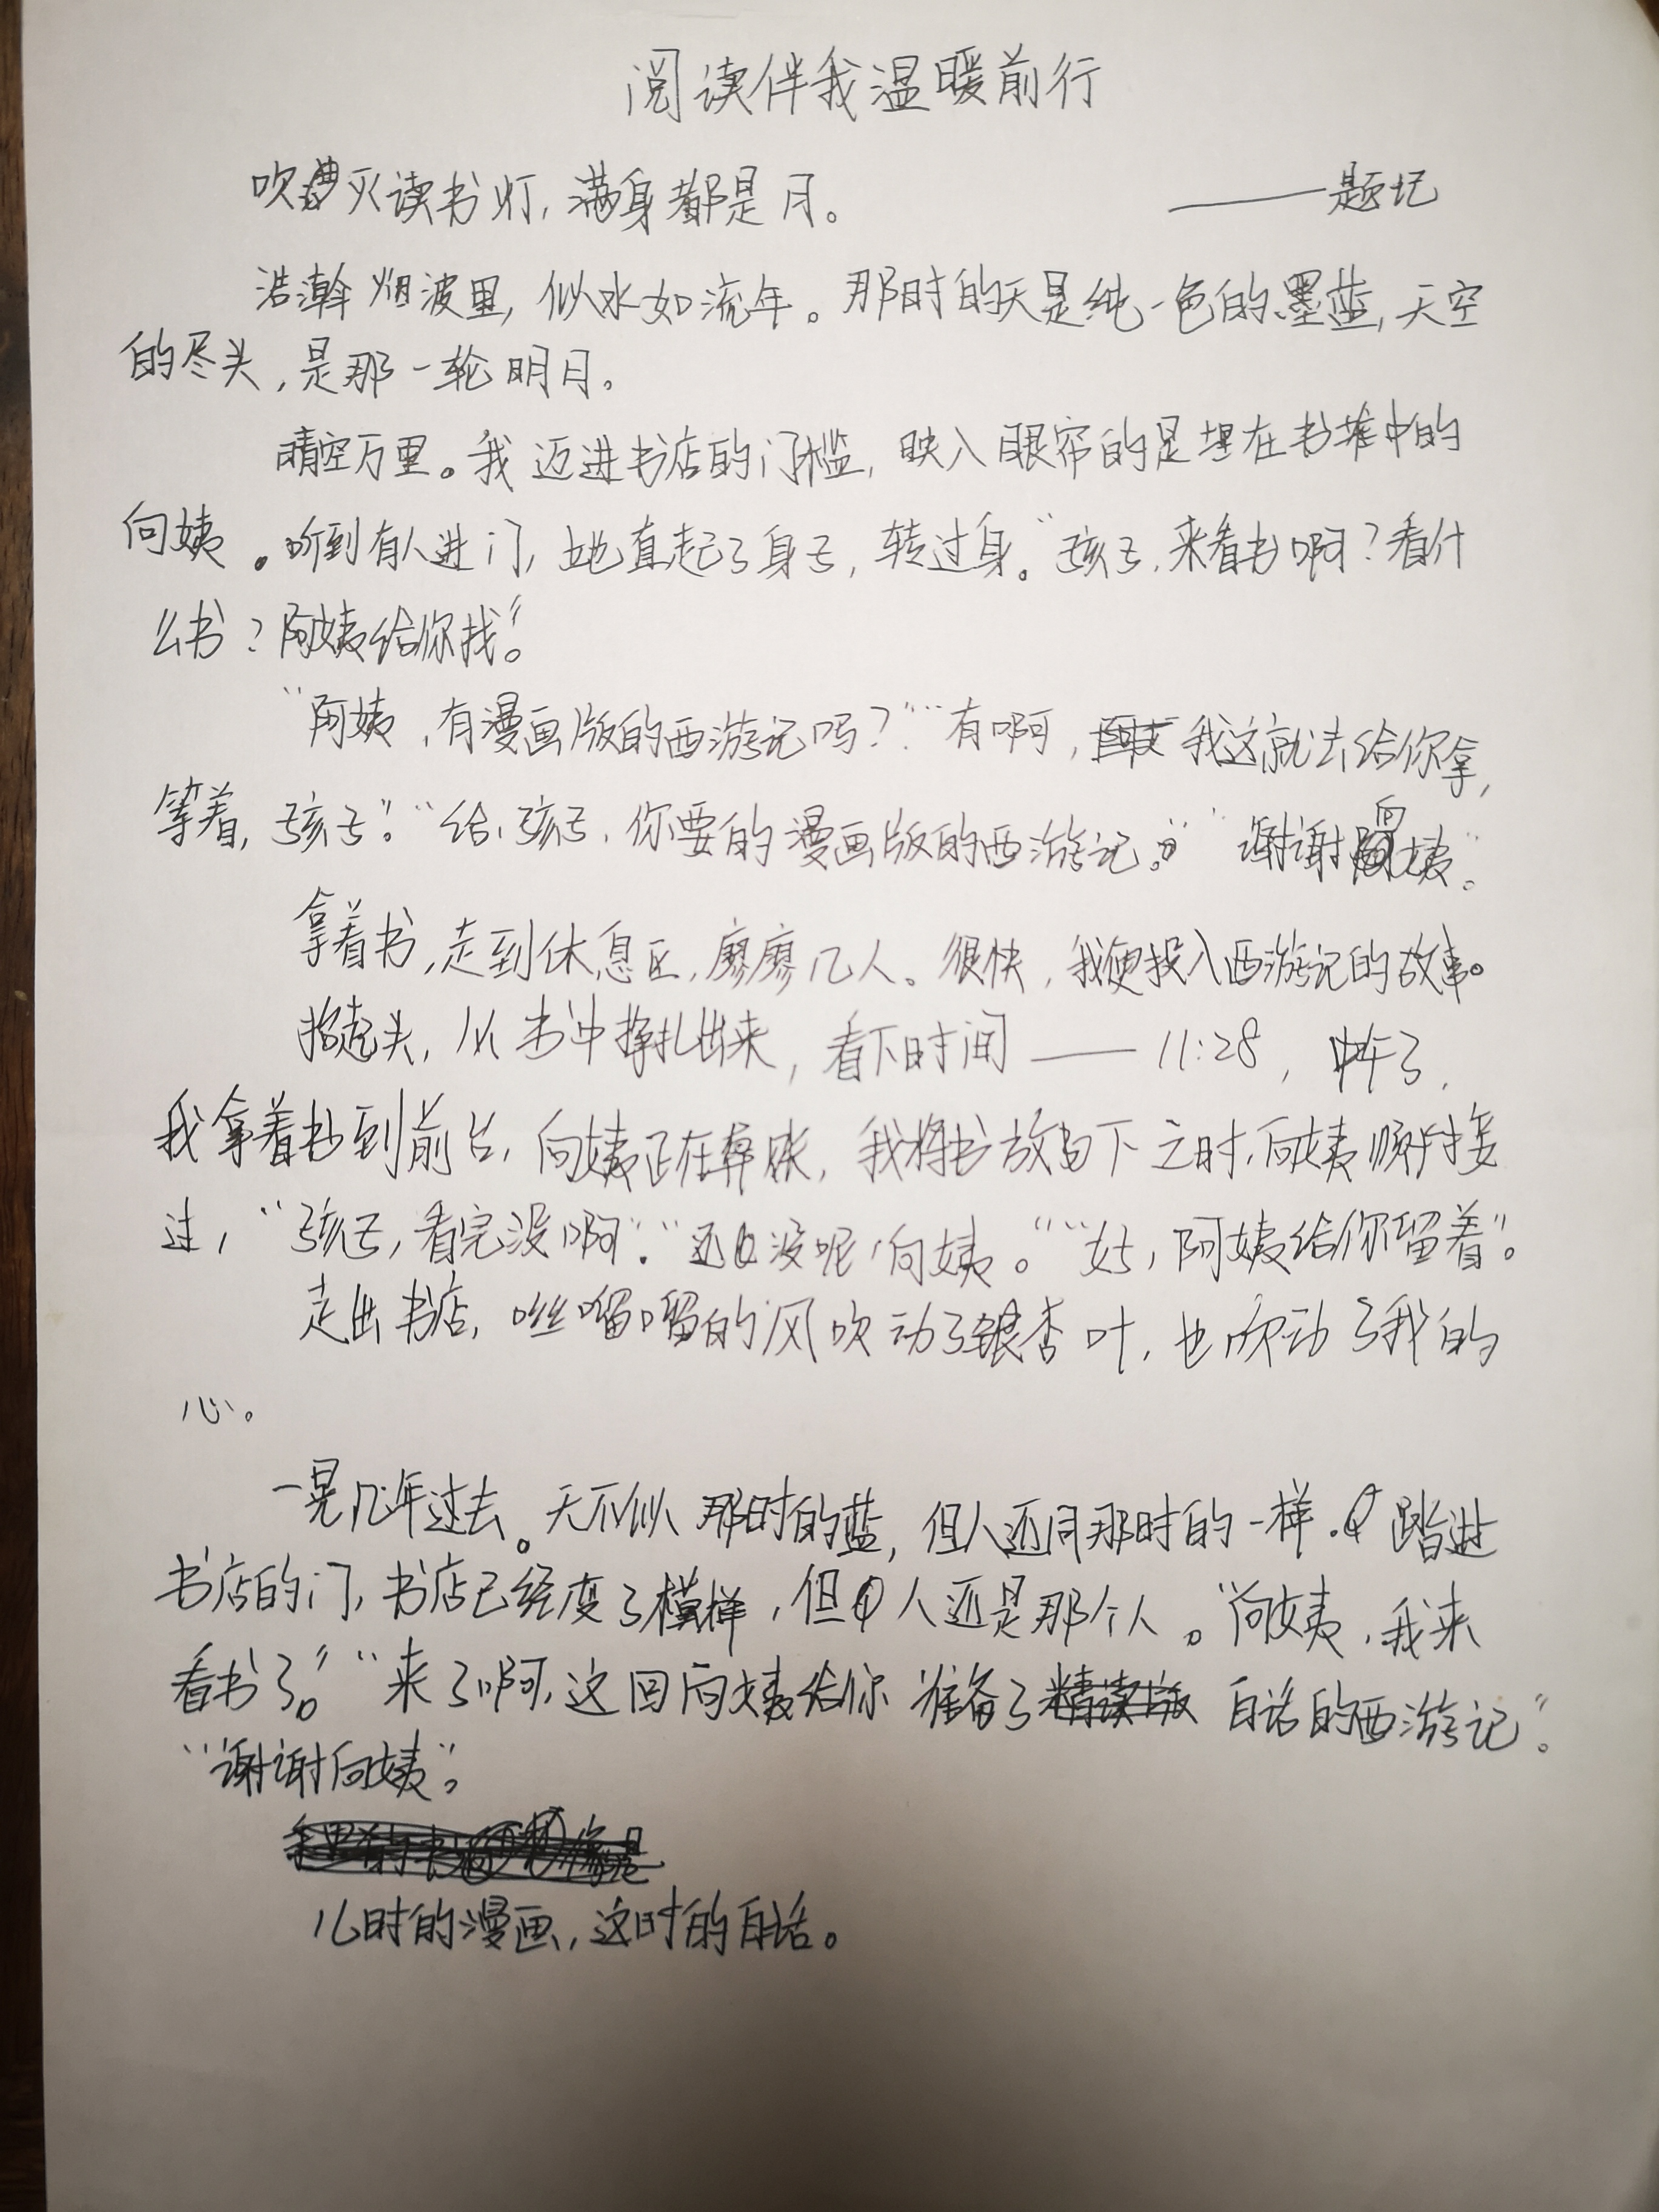 阅读伴我温暖前行
吹灭读书灯，满身都是月。 ——题记
浩瀚烟波里，似水如流年。那时的天是纯一色的墨蓝，天空
的尽头，是那一轮明月。
晴空万里。我迈进书店的门槛，映入眼帘的是埋在书堆中的
向姨。听到有人进门，她直起了身子，转过身。“孩子，来看书啊？看什
么书？阿姨给你找”。
“阿姨，有漫画版的西游记吗？”“有啊，我这就去给你拿，
等着，孩子”。“给，孩子，你要的漫画版的西游记。”“谢谢阿姨”。
拿着书，走到休息区，廖廖几人。很快，我便投入西游记的故事。
抬起头，从书中挣扎出来，看下时间——11:28，中午了，
我拿着书到前台，向姨正在算账，我将书放下之时，向姨顺手接
过，“孩子，看完没啊”。“还没呢，向姨。”“好，阿姨给你留着”。
走出书店，咝嘼嘼的风吹动了银杏叶，也吹动了我的
心。
一晃几年过去。天不似那时的蓝，但人还同那时的一样。踏进
书店的门，书店已经变了模样，但人还是那个人。“向姨，我来
看书了。”“来了啊，这回向姨给你准备了白话的西游记”。
“谢谢向姨”。
儿时的漫画，这时的白话。